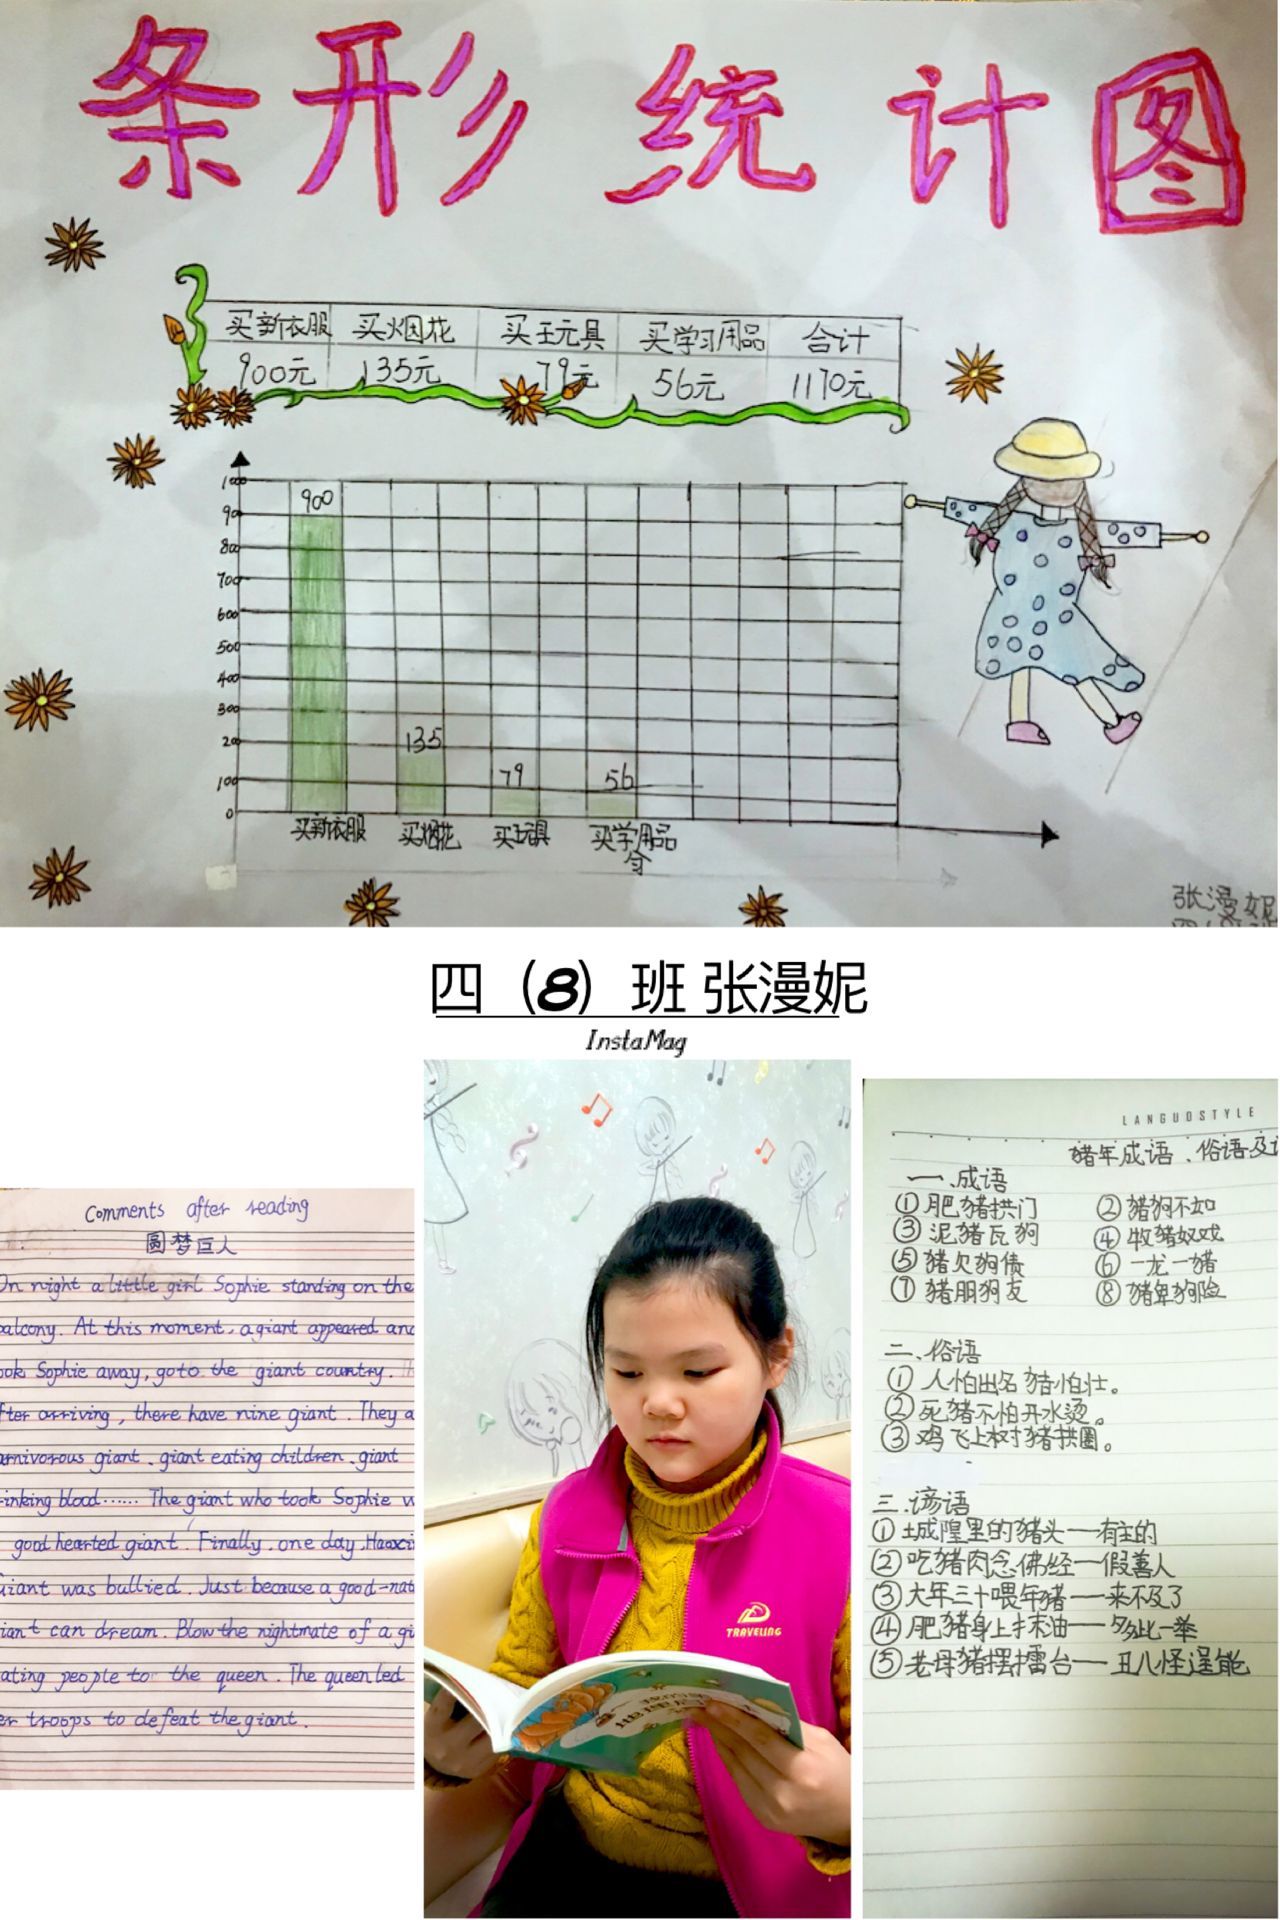 条形统计图
买新衣服 买烟花 买玩具 买学习用品 合计
900元 135元 79元 56元 1170元
900
800
700
600
500
400
300
200
135
100
79
56
0
买新衣服 买烟花 买玩具 买学用品
张漫妮
四（8）班 张漫妮
InstaMag
Comments after reading
圆梦巨人
On night a little girl Sophie standing on the
balcony. At this moment, a giant appeared and
ook Sophie away, go to the giant country.
fter arriving, there have nine giant. They a
arnivorous giant、giant eating children、giant
rinking blood…… The giant who took Sophie w
good hearted giant. Finally, one day, Haoxi
Giant was bullied. Just because a good-nat
iant can dream. Blow the nightmate of a gi
ating people to the queen. The queen led
er troops to defeat the giant.
TRAVELING
LANGUOSTYLE
猪年成语、俗语及
一.成语
①肥猪拱门 ②猪狗不如
③泥猪瓦狗 ④牧猪奴戏
⑤猪欠狗债 ⑥一龙一猪
⑦猪朋狗友 ⑧猪卑狗险
二.俗语
①人怕出名猪怕壮。
②死猪不怕开水烫。
③鸡飞上树猪拱圈。
三.谚语
①城隍里的猪头——有主的
②吃猪肉念佛经——假善人
③大年三十喂年猪——来不及了
④肥猪身上抹油——多此一举
⑤老母猪摆擂台——丑八怪逞能